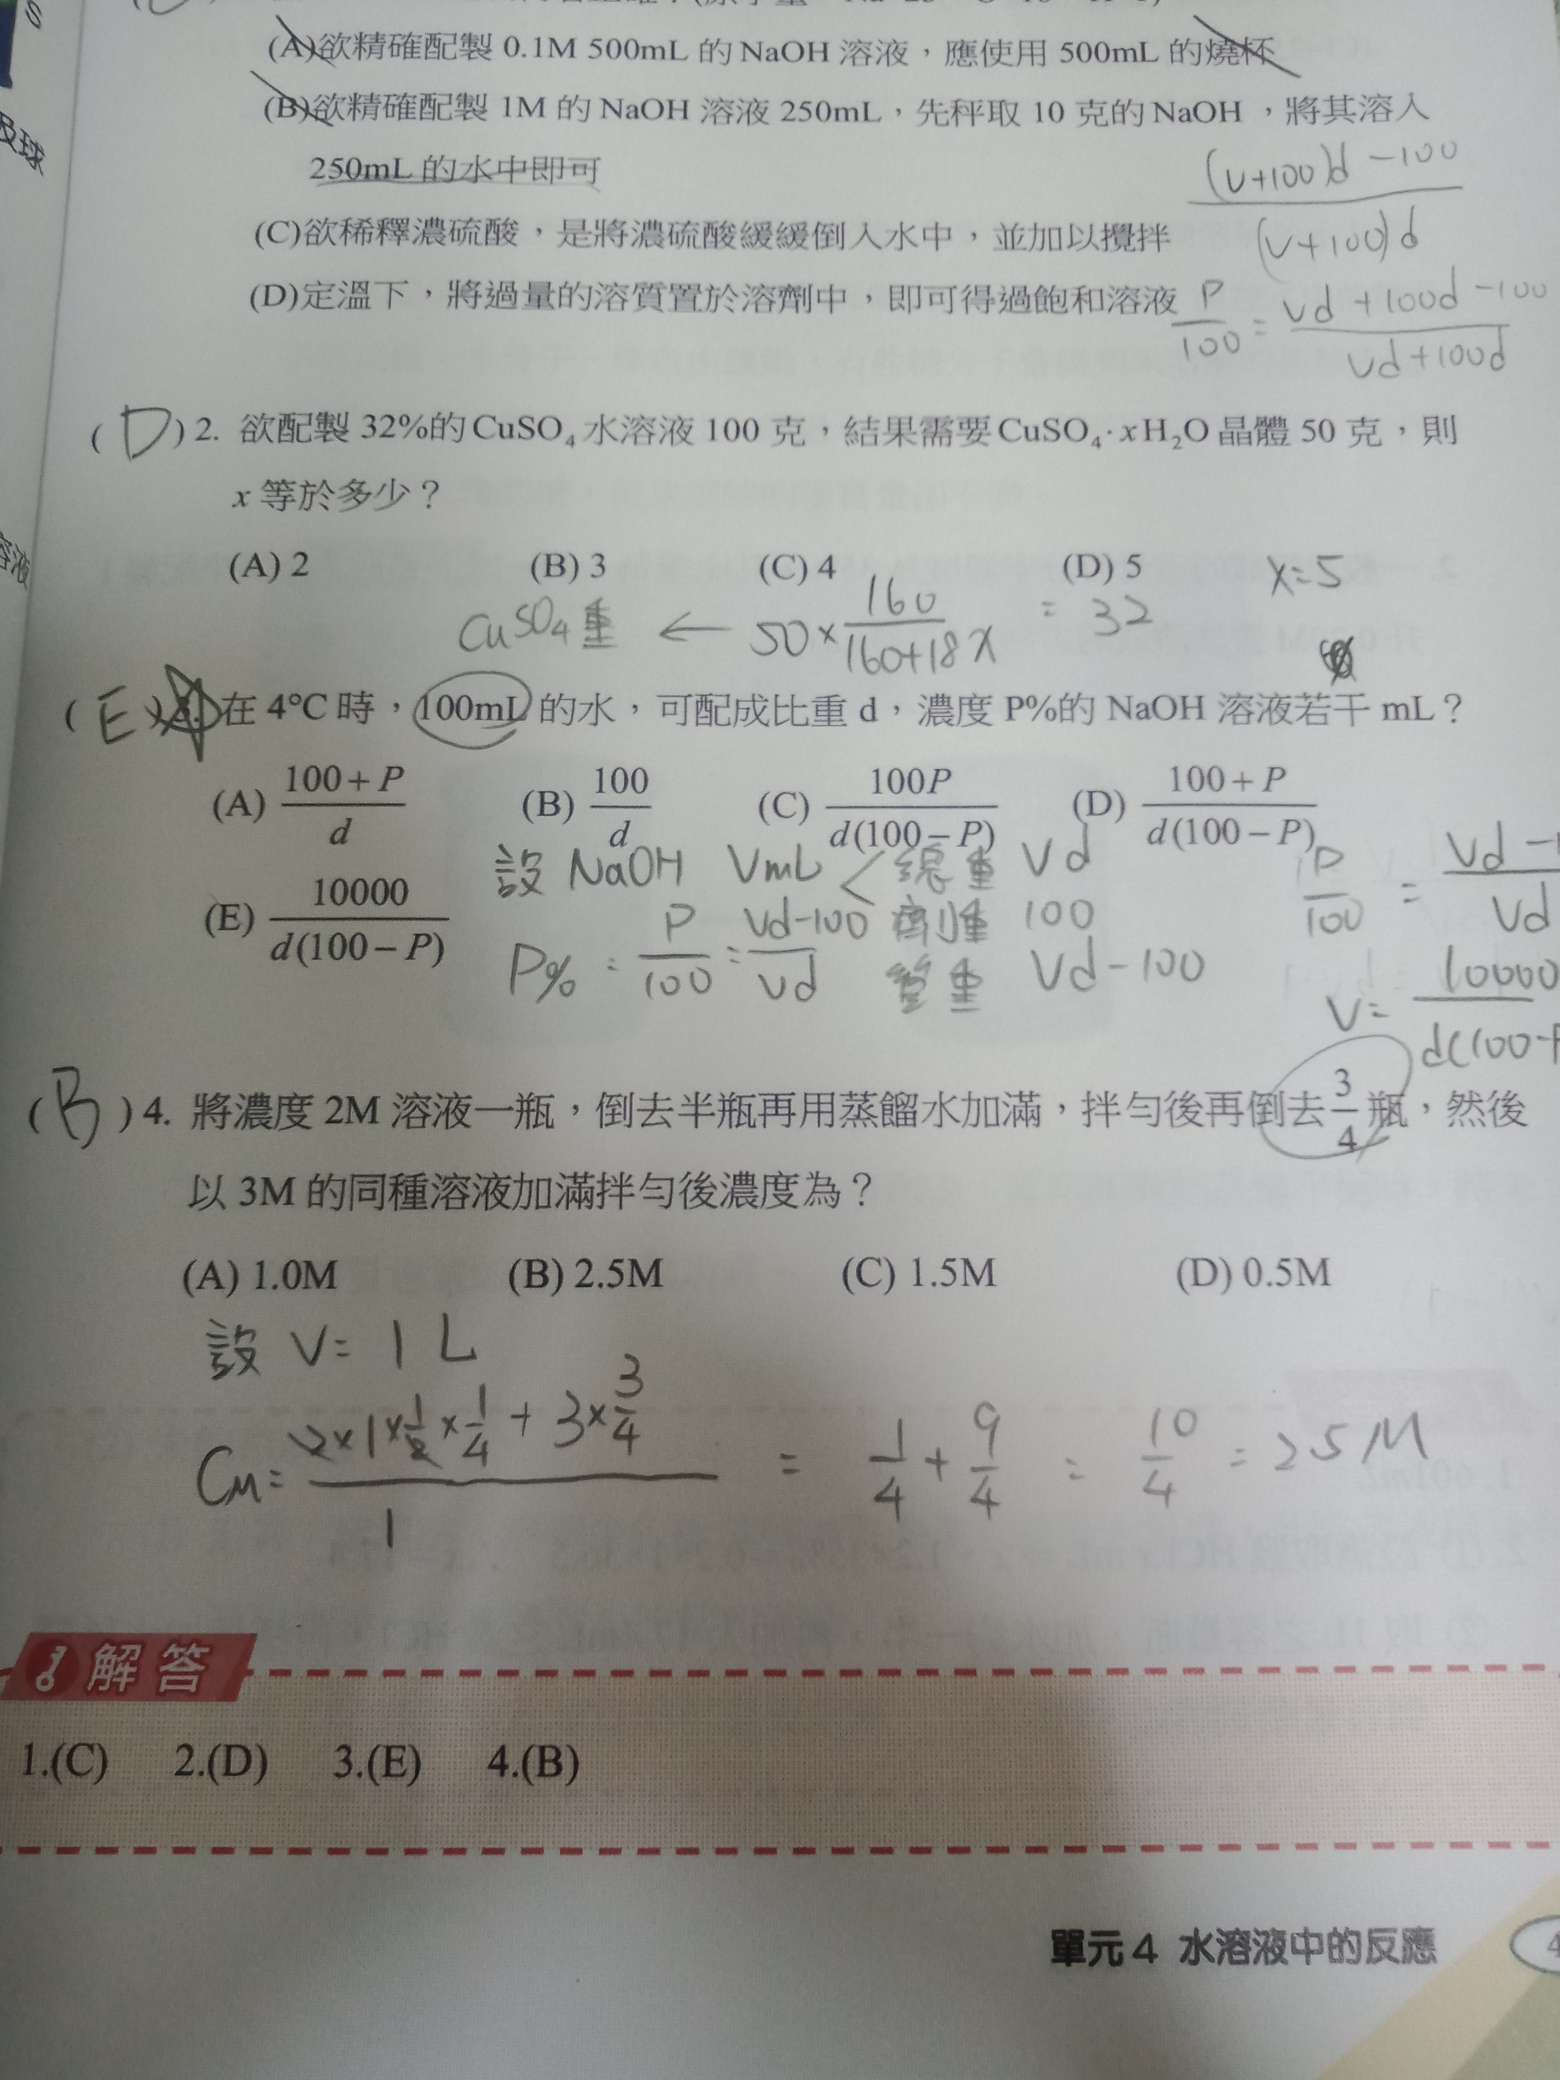 (A)欲精確配製 0.1M 500mL 的 NaOH 溶液，應使用 500mL 的燒杯
(B)欲精確配製 1M 的 NaOH 溶液 250mL，先秤取 10 克的 NaOH ，將其溶入
250mL 的水中即可
(V+100)d -100
(V+100)d
(C)欲稀釋濃硫酸，是將濃硫酸緩緩倒入水中，並加以攪拌
(D)定溫下，將過量的溶質置於溶劑中，即可得過飽和溶液
P/100 = Vd +100d -100 / Vd+100d
( D ) 2. 欲配製 32%的 CuSO₄ 水溶液 100 克，結果需要 CuSO₄·xH₂O 晶體 50 克，則
x 等於多少？
(A) 2 (B) 3 (C) 4 (D) 5 X=5
CuSO4重 ← 50×160/160+18X = 32
( E ) 在 4°C 時，100mL 的水，可配成比重 d，濃度 P%的 NaOH 溶液若干 mL？
(A) 100+P/d (B) 100/d (C) 100P/d(100−P) (D) 100+P/d(100−P)
設 NaOH VmL < 總重 Vd
(E) 10000/d(100−P)
P% = P/100 = Vd-100/Vd
劑重 100
Vd-100
P/100 = Vd-1/Vd
V= 10000/d(100-P
( B ) 4. 將濃度 2M 溶液一瓶，倒去半瓶再用蒸餾水加滿，拌勻後再倒去 3/4 瓶，然後
以 3M 的同種溶液加滿拌勻後濃度為？
(A) 1.0M (B) 2.5M (C) 1.5M (D) 0.5M
設 V= 1 L
CM= 2×1×1/2×1/4 + 3×3/4 / 1 = 1/4 + 9/4 = 10/4 = 2.5 M
解答
1.(C) 2.(D) 3.(E) 4.(B)
單元 4 水溶液中的反應